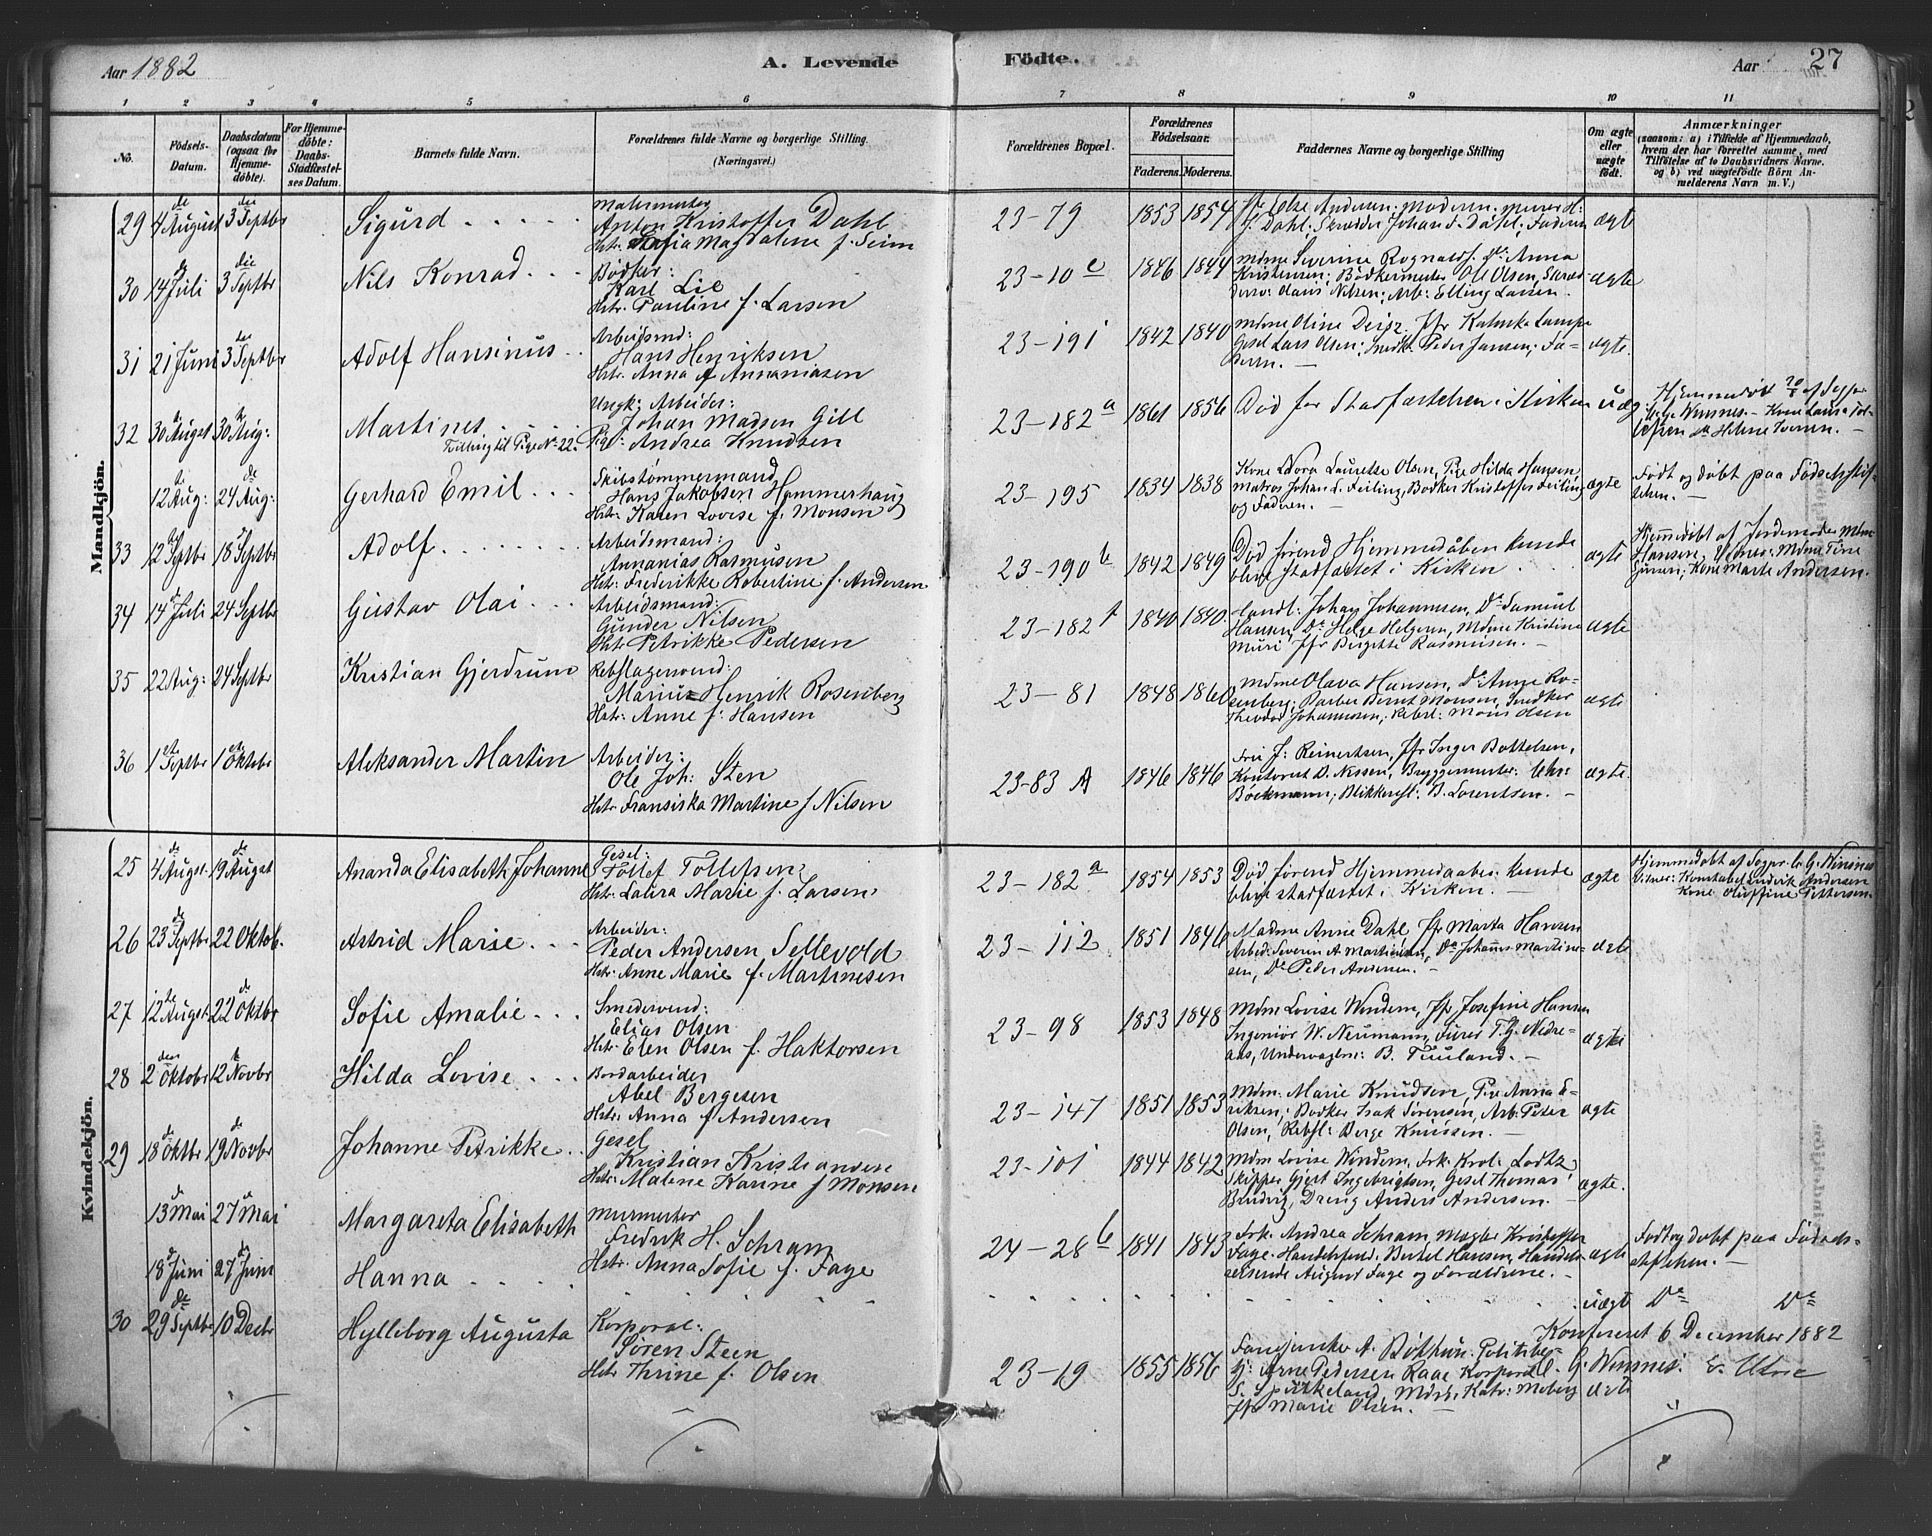 Aar 1882
A. Levende
Födte.
Aar
27
1 2 3 4 5 6 7 8 9 10 11
No.
Födsels-
Datum.
Daabsdatum
(ogsaa for
Hjemme-
döbte).
For Hjemme-
döbte:
Daabs-
Stadfæstel-
ses Datum.
Barnets fulde Navn.
Forældrenes fulde Navne og borgerlige Stilling
(Næringsvei.)
Forældrenes Bopæl.
Forældrenes
Födselsaar.
Faderens. Moderens.
Faddernes Navne og borgerlige Stilling
Om ægte
eller
uægte
födt.
Anmærkninger
(saasom: a) i Tilfælde af Hjemmedaab,
hvem der har forrettet samme, med
Tilföielse af to Daabsvidners Navne.
og b) ved uægtefödte Börn An-
melderens Navn m. V.)
Mandkjön.
29 4de August 3die Septbr Sigurd
Malermester
Anton Kristoffer Dahl
Hstr. Sofia Magdalene f. Seim
23-79 1853 1854
Fr. Else Andersen, Moderen, Murer H.
J. Dahl, Skrædder Johan F. Dahl, Faderen
ægte
30 14de Juli 3die Septbr Nils Konrad
Bødker:
Karl Lie
Hstr. Pauline f. Larsen
23-10 c 1846 1844
Mdme Severine Rognald, Do Anna
Kristensen, Bødkermester Ole Olsen, Skræd-
dersv: Claus Nilsen, Arb: Elling Larsen.
ægte
31 21 Juni 3die Septbr Adolf Hansinus
Arbeidsmd:
Hans Henriksen
Hstr. Anna f. Annaniasen
23-191 1842 1840
Gesel Lars Olsen, Snedk. Peder Jansen, Fa-
deren.
ægte.
32 30te August. 30te Aug: Martines
Tvilling til Pige No 22.
Ungk: Arbeider:
Johan Madsen Gill
Pige: Andrea Knudsen
23-182 a 1861 1856
Død før Stadfæstelsen i Kirken
uæg.
12te Aug: 24de Aug: Gerhard Emil
Skibstømmermand
Hans Jakobsen Hammerhaug
Hstr. Karen Lovise f. Monsen
23-195 1834 1838
Kone Nora Lauretse Olsen, Pige Hilda Hansen
Matros Johan L. Feiling, Bødker Kristoffer Feiling
og Faderen.
ægte
Født og døbt paa Fødselsstif-
telsen.
33 12te Septbr 18de Septbr Adolf
Arbeidsmand:
Annanias Rasmusen
Hstr. Frederikke Robertine f. Andersen
23-190 b 1842 1849
Død førend Hjemmedåben kunde
blive stadfæstet i Kirken
ægte
Hjemmedøbt af Jordemoder Mdm
Hansen, Vidner: Mdme Tine
Iversen, Kone Marte Andersen.
34 14de Juli 24 Septbr Gustav Olai
Arbeidsmand:
Gunder Nilsen
Hstr. Petrikke Pedersen
23-182 1840 1840
Handl: Johan Johannesen, Do Samuel
Hansen, Do Helge Helgesen, Mdme Kristine
Muri Jfr Birgitte Rasmusen.
ægte
35 22 Aug: 24 Septbr Kristian Gjerdrum
Rebslagersvend:
Marius Henrik Rosenberg
Hstr. Anne f. Hansen
23-81 1848 1860
Mdme Olava Hansen, Do Anne Ro-
senberg, Barber Bernt Monsen, Snedker
Theodor Johannesen, Rebsl: Mons Olsen
ægte
36 1ste Septbr 1ste Oktobr Aleksander Martin
Arbeider:
Ole Joh: Sten
Hstr. Fransiska Martine f. Nilsen
23-83 A 1846 1846
Fru J. Reinertsen, Jfr Inger Bottelsen,
Kontorist D. Nissen, Bryggermester: Chr:
Bøckmann, Blikkensl: B. Lorentsen.
ægte.
Kvindekjön.
25 4de August. 19de August Ananda Elisabeth Johanne
Gesel:
Tollef Tollefsen
Hstr. Laura Marie f. Larsen
23-182 a 1854 1853
Død førend Hjemmedaaben kunde
blive stadfæstet i Kirken.
ægte
Hjemmedøbt af Sogpr. C. G. Winsnes
Vidner: Konstabel Endvik Andersen
Kone Oluffine Pettersen
26 23de Septbr 22 Oktob. Astrid Marie
Arbeider:
Peder Andersen Sellevold
Hstr. Anne Marie f. Martinesen
23-112 1851 1846
Madme Anne Dahl, Jfr Marta Hansen
Arbeid: Severin A. Martinsen, Do Johannes Martine-
sen, Do Peder Andersen.
ægte
27 12te August. 22de Oktbr Sofie Amalie
Smedesvend:
Elias Olsen
Hstr. Elen Olsen f. Haktorsen
23-98 1853 1848
Mdm Lovise Windem, Jfr Josefine Hansen
Ingeniør W. Neumann, Furer T. G. Nedre-
aas, Undervagtm: B. Tuuland.
ægte
28 2den Oktobr 12te Novbr Hilda Lovise
Bordarbeider
Abel Bergesen
Hstr. Anna f. Andersen
23-147 1851 1853
Mdm. Marie Knudsen, Pige Anna E-
riksen, Bødker Isak Sørensen, Arb: Peder
Olsen, Rebsl: Berge Knudsen.
ægte
29 18de Oktbr 19de Novbr Johanne Petrikke
Gesel
Kristian Kristiansen
Hstr. Malene Karine f. Monsen
23-101 1844 1842
Mdm Lovise Windem, Frk. Krol: Lodtz
Skipper Gjert Ingebrigtsen, Gesel Thomas
Dreng Anders Andersen.
ægte.
13de Mai 27de Mai Margareta Elisabeth
Murmester
Fredrik H. Schram
Hstr. Anna Sofie f. Faye
24-28 b 1841 1843
Frk. Andrea Schram, Mægler Kristoffer
Faye, Handelsfuldm. Bertel Hansen, Handels-
reisende August Faye og Forældrene.
ægte
Født og døbt paa Fødsels-
stiftelsen.
18de Juni 27de Juni Hanna
uægte
Do Do
30 29de Septbr 10 Decbr Hylleborg Augusta
Korporal:
Søren Steen
Hstr. Thrine f. Olsen
23-19 1855 1856
Fanejunker A. Bøthun, Politibe-
tj: Arne Pedersen Raae Korporal
S. Spirkeland, Mdm. Katr: Moberg
Jfr Marie Olsen.
ægte
Konfereret 6 December 1882
G. Winsnes.